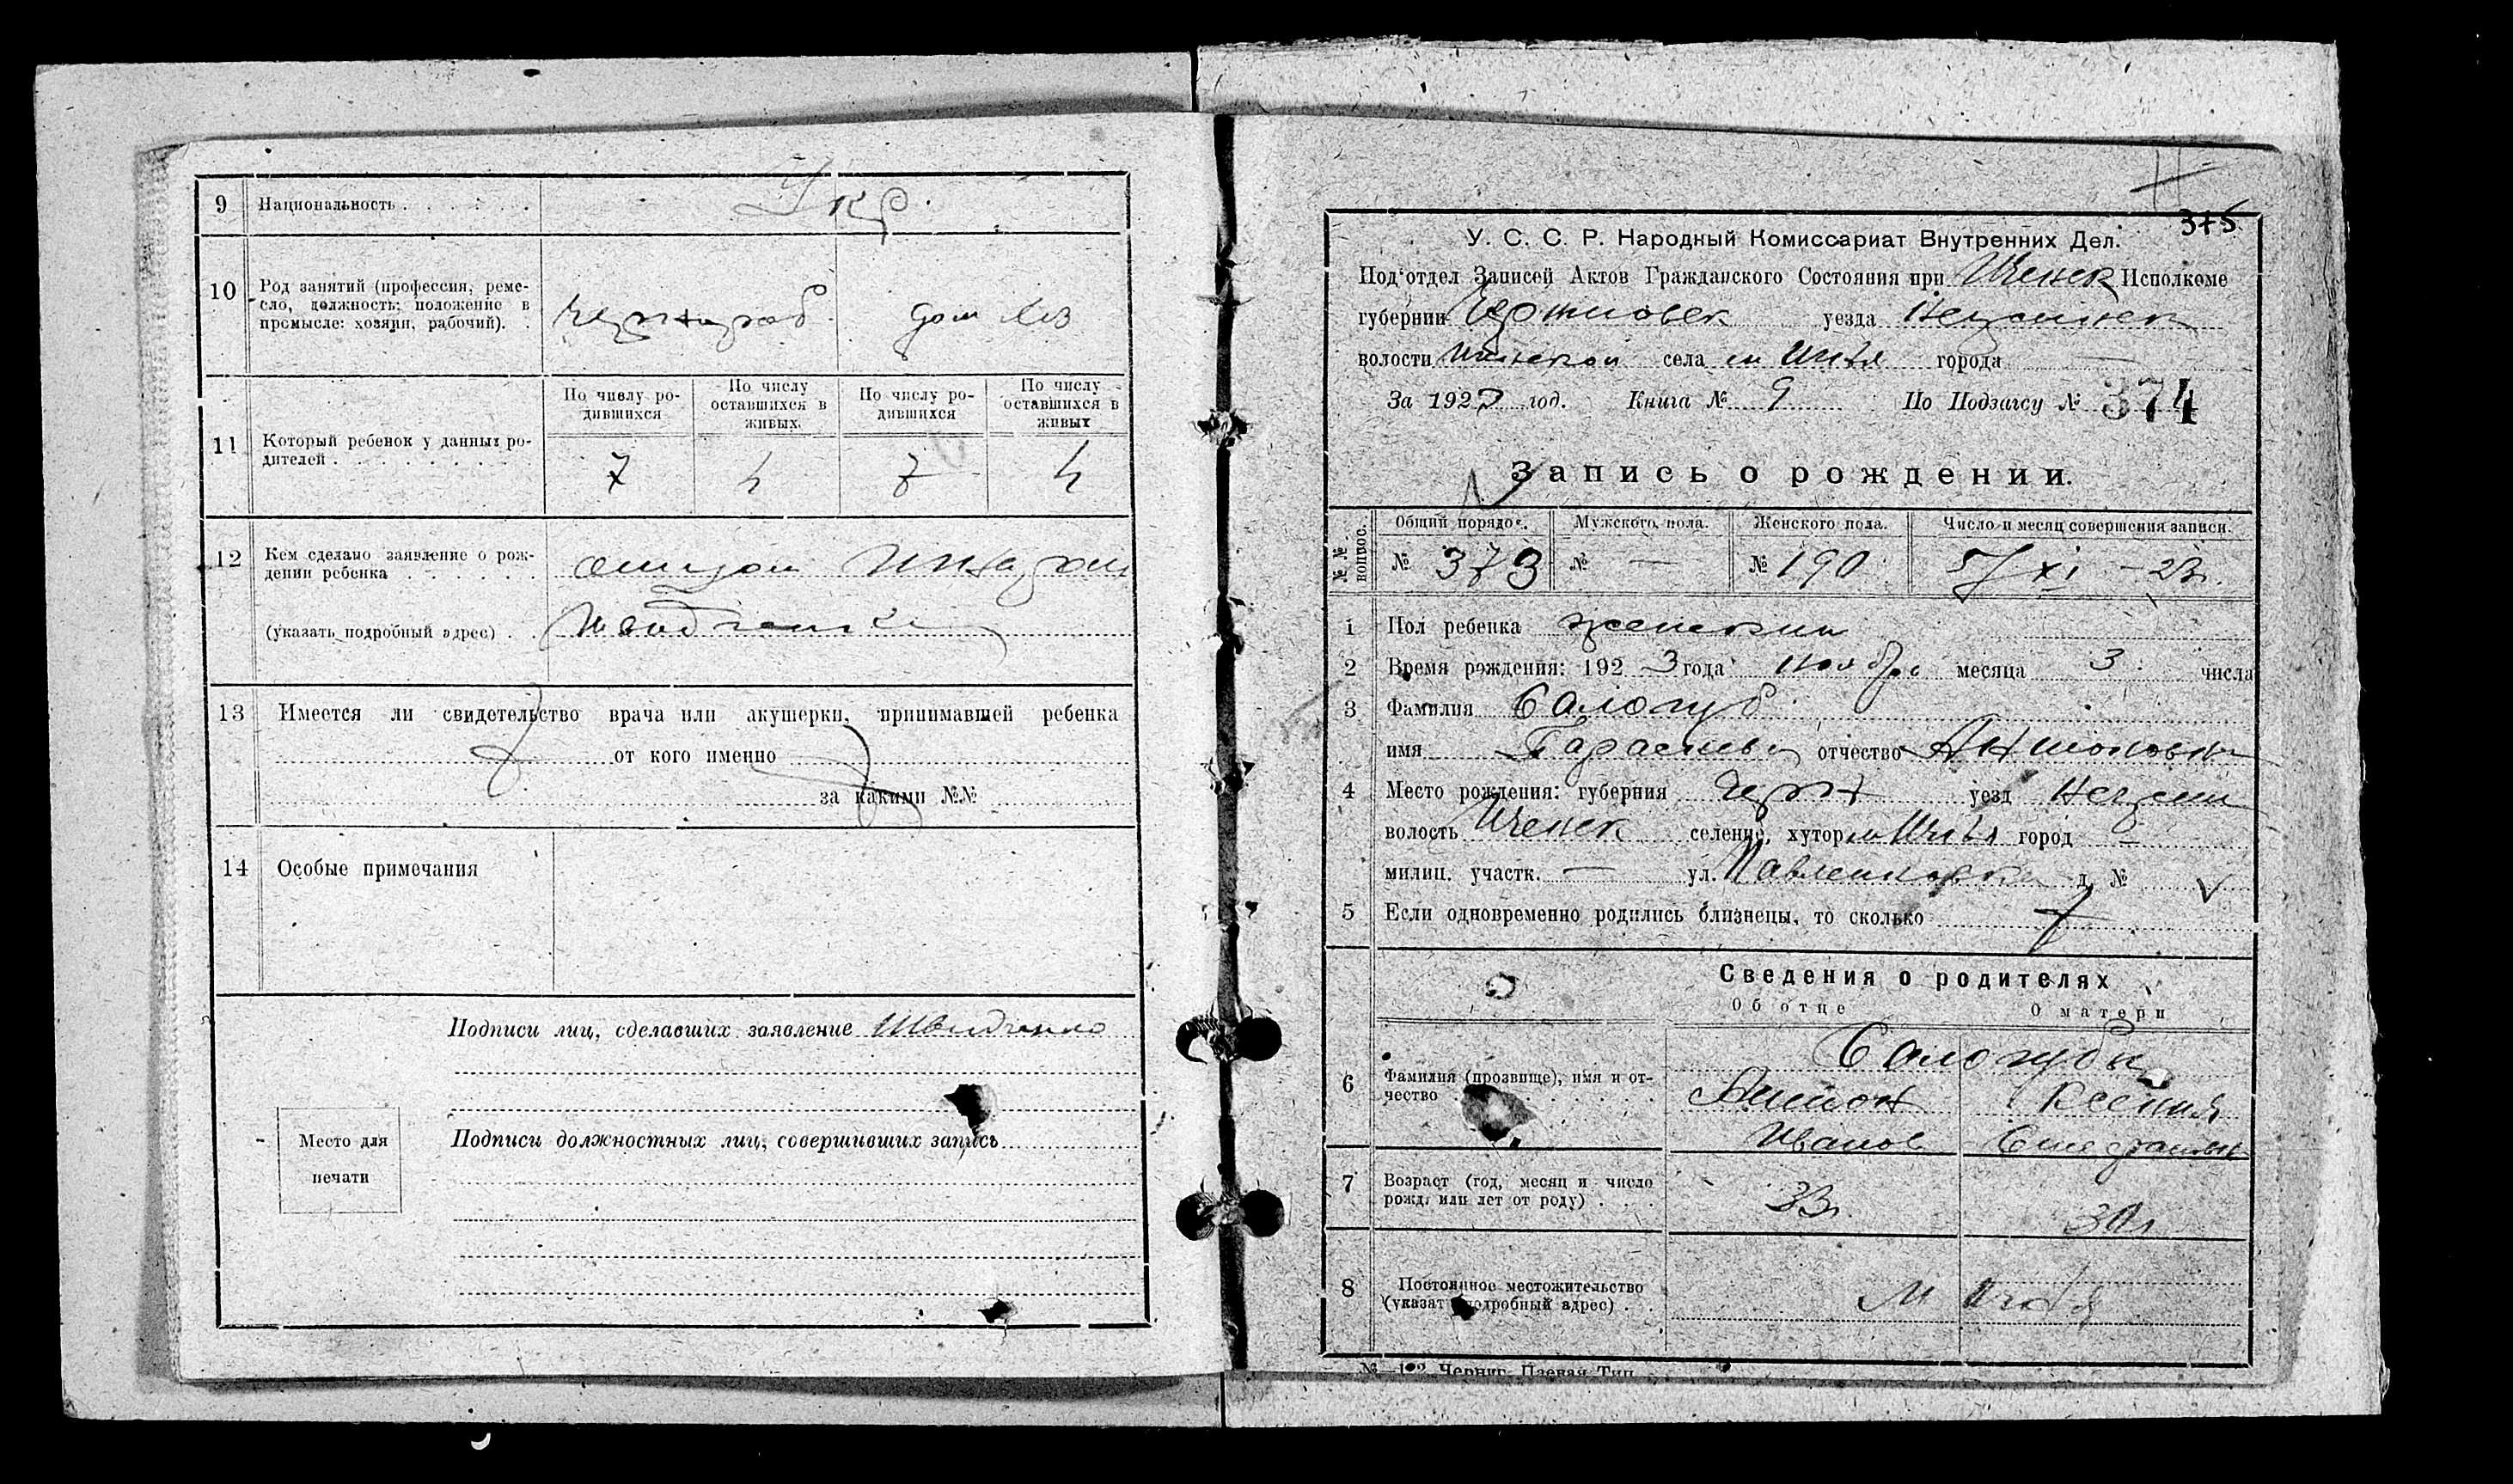 9 Национальность . . . . . . Укр.
10 Род занятий (профессия, реме-
сло, должность; положение в
промысле: хозяин, рабочий). . чернораб. дом хоз
По числу ро-
дившихся
По числу
оставшихся в
живых.
По числу ро-
дившихся
По числу
оставшихся в
живых
11 Который ребенок у данных ро-
дителей . . . . . . . . . 7 4 7 4
12 Кем сделано заявление о рож-
дении ребенка . . . . . .
(указать подробный адрес) . .
13 Имеется ли свидетельство врача или акушерки, принимавшей ребенка
от кого именно
за какими №№
14 Особые примечания
Подписи лиц, сделавших заявление Швидченко
Место для
печати
Подписи должностных лиц, совершивших запись
375
У. С. С. Р. Народный Комиссариат Внутренних Дел.
Под'отдел Записей Актов Гражданского Состояния при Исполкоме
губернии Черниговск уезда Нежинск
волости села м города
За 1923 год. Книга № 9 По Подзагсу № 374
Запись о рождении.
№№ вопрос. Общий порядо Мужского пола. Женского пола. Число и месяц совершения записи.
№ 373 № — № 190 5/xi - 23.
1 Пол ребенка женский
2 Время рождения: 192 3 года ноября месяца 3 числа
3 Фамилия Сологуб
имя отчество Антоновна
4 Место рождения: губерния Черн уезд Нежин
волость селение, хутор м город —
милиц. участк. — ул. Павленковка д. №
5 Если одновременно родились близнецы, то сколько
Сведения о родителях
Об отце О матери
Сологубы
6 Фамилия (прозвище), имя и от-
чество Антон Ксения
Иванов
7 Возраст (год, месяц и число
рожд. или лет от роду) . . . 33 30
8 Постоянное местожительство
(указат подробный адрес) . . м
Черниг. Паевая Тип.